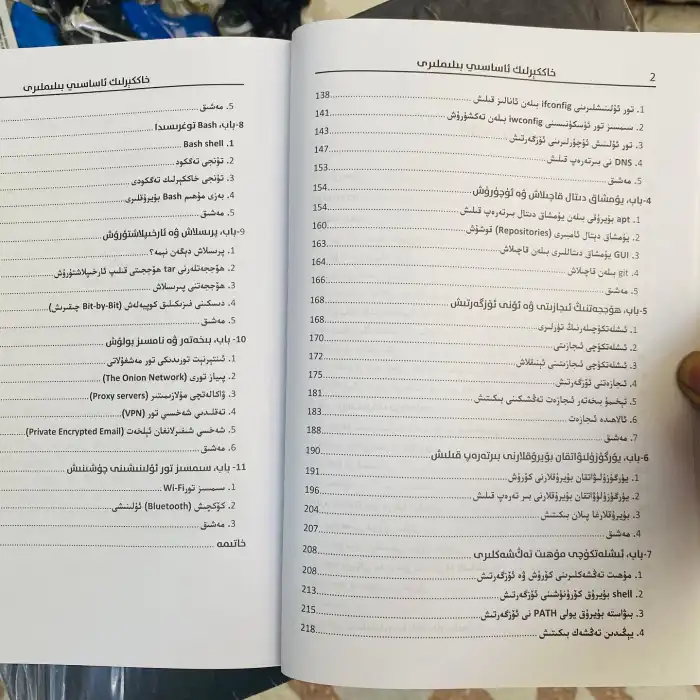 2
خاككېرلىك ئاساسىي بىلىملىرى
1. تور ئۇلىنىشلىرىنى ifconfig بىلەن ئانالىز قىلىش......138
2. سىمسىز تور ئۈسكۈنىسىنى iwconfig بىلەن تەكشۈرۈش......141
3. تور ئۇلىنىش ئۇچۇرلىرىنى ئۆزگەرتىش......143
4. DNS نى بىرتەرەپ قىلىش......147
5. مەشىق......153
4-باب، يۇمشاق دىتال قاچىلاش ۋە ئۆچۈرۈش......154
1. apt بۇيرۇقى بىلەن يۇمشاق دىتال بىرتەرەپ قىلىش......154
2. يۇمشاق دىتال ئامبىرى (Repositories) قوشۇش......160
3. GUI يۇمشاق دىتاللىرى بىلەن قاچىلاش......163
4. git بىلەن قاچىلاش......164
5. مەشىق......166
5-باب، ھۆججەتنىڭ ئىجازىتى ۋە ئۇنى ئۆزگەرتىش......168
1. ئىشلەتكۈچىلەرنىڭ تۈرلىرى......168
2. ئىشلەتكۈچى ئىجازىتى......170
3. ئىشلەتكۈچى ئىجازىتىنى ئېنىقلاش......172
4. ئىجازەتنى ئۆزگەرتىش......175
5. تېخىمۇ بىخەتەر ئىجازەت تەڭشىكىنى بىكىتىش......181
6. ئالاھىدە ئىجازەت......183
7. مەشىق......188
6-باب، يۈرگۈزۈلىۋاتقان بۇيرۇقلارنى بىرتەرەپ قىلىش......190
1. يۈرگۈزۈلىۋاتقان بۇيرۇقلارنى كۆرۈش......191
2. يۈرگۈزۈلۈۋاتقان بۇيرۇقلارنى بىر تەرەپ قىلىش......196
3. بۇيرۇقلارغا پىلان بىكىتىش......204
4. مەشىق......207
7-باب، ئىشلەتكۈچى مۇھىت تەڭشەكلىرى......208
1. مۇھىت تەڭشەكلىرىنى كۆرۈش ۋە ئۆزگەرتىش......208
2. shell بۇيرۇق كۆرۈنۈشىنى ئۆزگەرتىش......213
3. بىۋاستە بۇيرۇق يولى PATH نى ئۆزگەرتىش......215
4. يېڭىدىن تەڭشەك بىكىتىش......218
خاككېرلىك ئاساسىي بىلىملىرى
5. مەشىق
8-باب، Bash توغرىسىدا
1. Bash shell
2. تۇنجى تەگكود
3. تۇنجى خاككېرلىك تەگكودى
4. بەزى مۇھىم Bash بۇيرۇقلىرى
5. مەشىق
9-باب، پرىسلاش ۋە ئارخىپلاشتۇرۇش
1. پرىسلاش دېگەن نېمە؟
2. ھۆججەتلەرنى tar ھۆججىتى قىلىپ ئارخىپلاشتۇرۇش
3. ھۆججەتنى پرىسلاش
4. دىسكىنى فىزىكىلىق كوپىيەلەش (Bit-by-Bit چىقىرىش)
5. مەشىق
10- باب، بىخەتەر ۋە نامسىز بولۇش
1. ئىنتېرنېت تورىدىكى تور مەشغۇلاتى
2. پىياز تورى (The Onion Network)
3. ۋاكالەتچى مۇلازىمىتىر (Proxy servers)
4. تەقلىدىي شەخسىي تور (VPN)
5. شەخسى شىفىرلانغان ئېلخەت (Private Encrypted Email)
6. مەشىق
11- باب، سىمسىز تور ئۇلىنىشىنى چۈشىنىش
1. سىمسىز تور Wi-Fi
2. كۆكچىش (Bluetooth) ئۇلىنىشى
3. مەشىق
خاتىمە